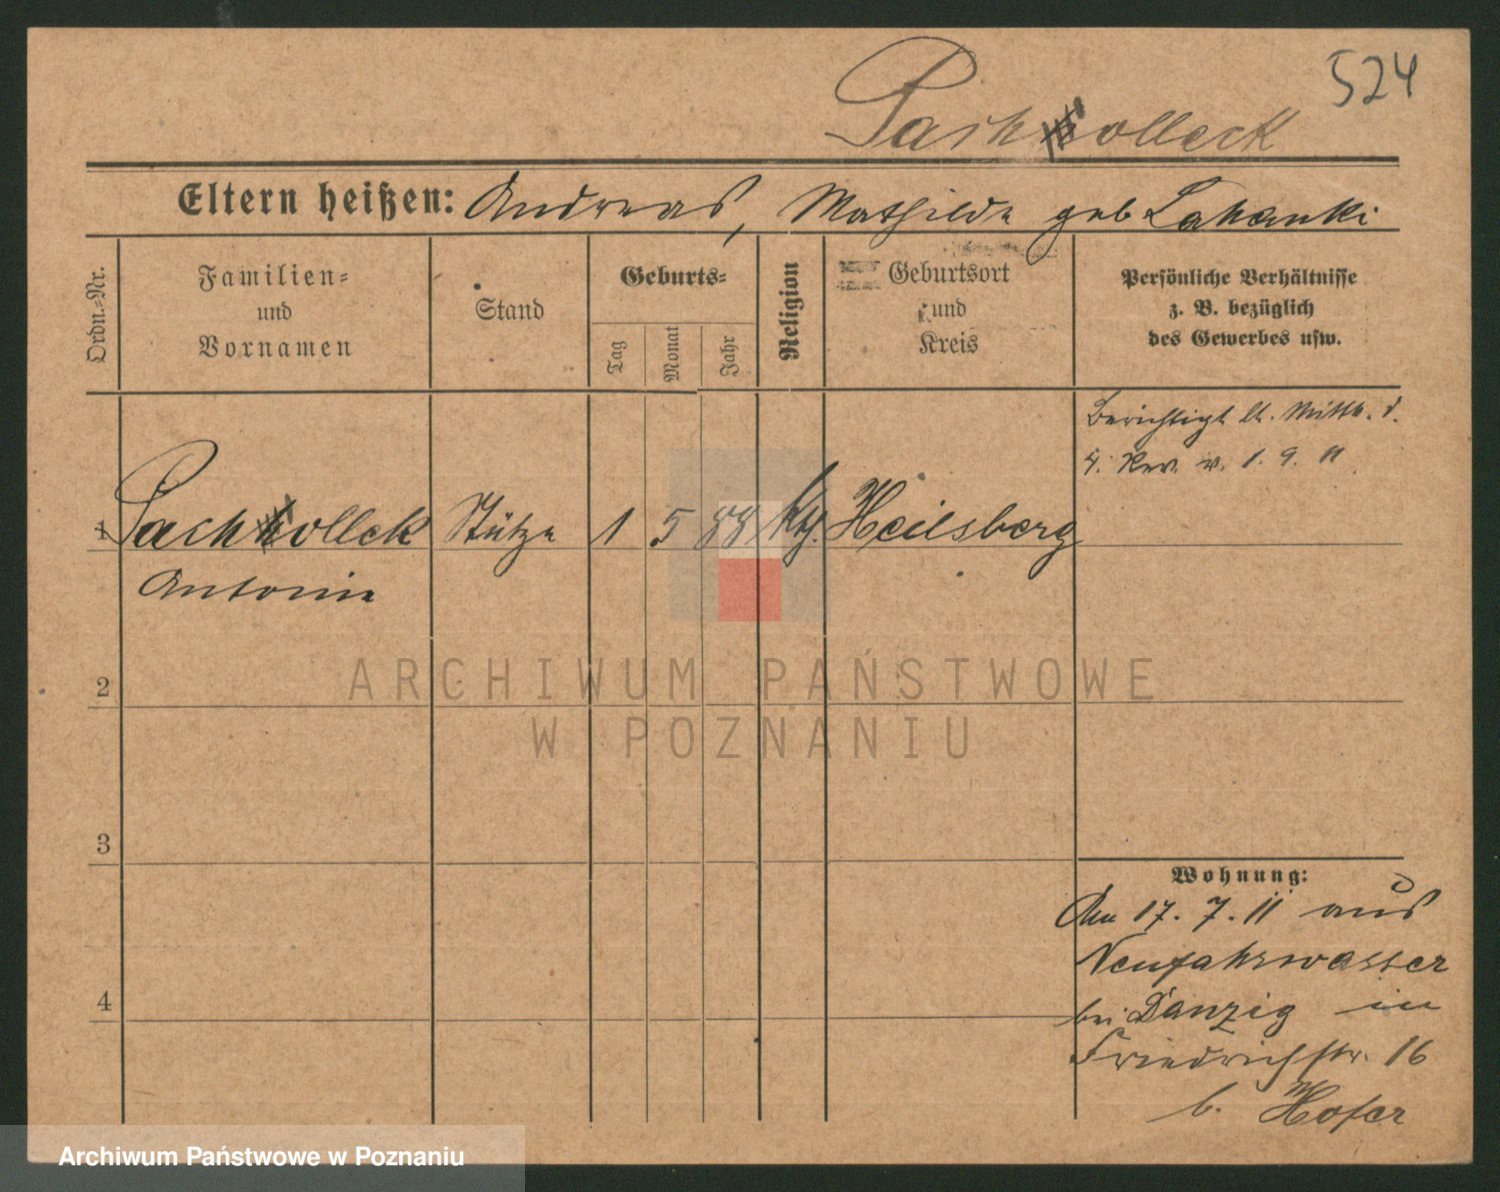 524
Pacholleck
Eltern heißen: Andreas, Mathilde geb
Ordn.=Nr.
Familien=
und
Vornamen
Stand
Geburts=
Tag
Monat
Jahr
Religion
Geburtsort
und
Kreis
Persönliche Verhältnisse
z. B. bezüglich
des Gewerbes usw.
Berichtigt lt. Mitth. d.
4. Rev. v. 1. 9. 11
1 Pacholleck Stütze 1 5 88 kth. Heilsberg
Antonie
2
3
4
Wohnung:
Am 17. 7. 11 aus
Neufahrwasser
bei Danzig in
Friedrichstr. 16
b. Hofer
ARCHIWUM PAŃSTWOWE
W POZNANIU
Archiwum Państwowe w Poznaniu